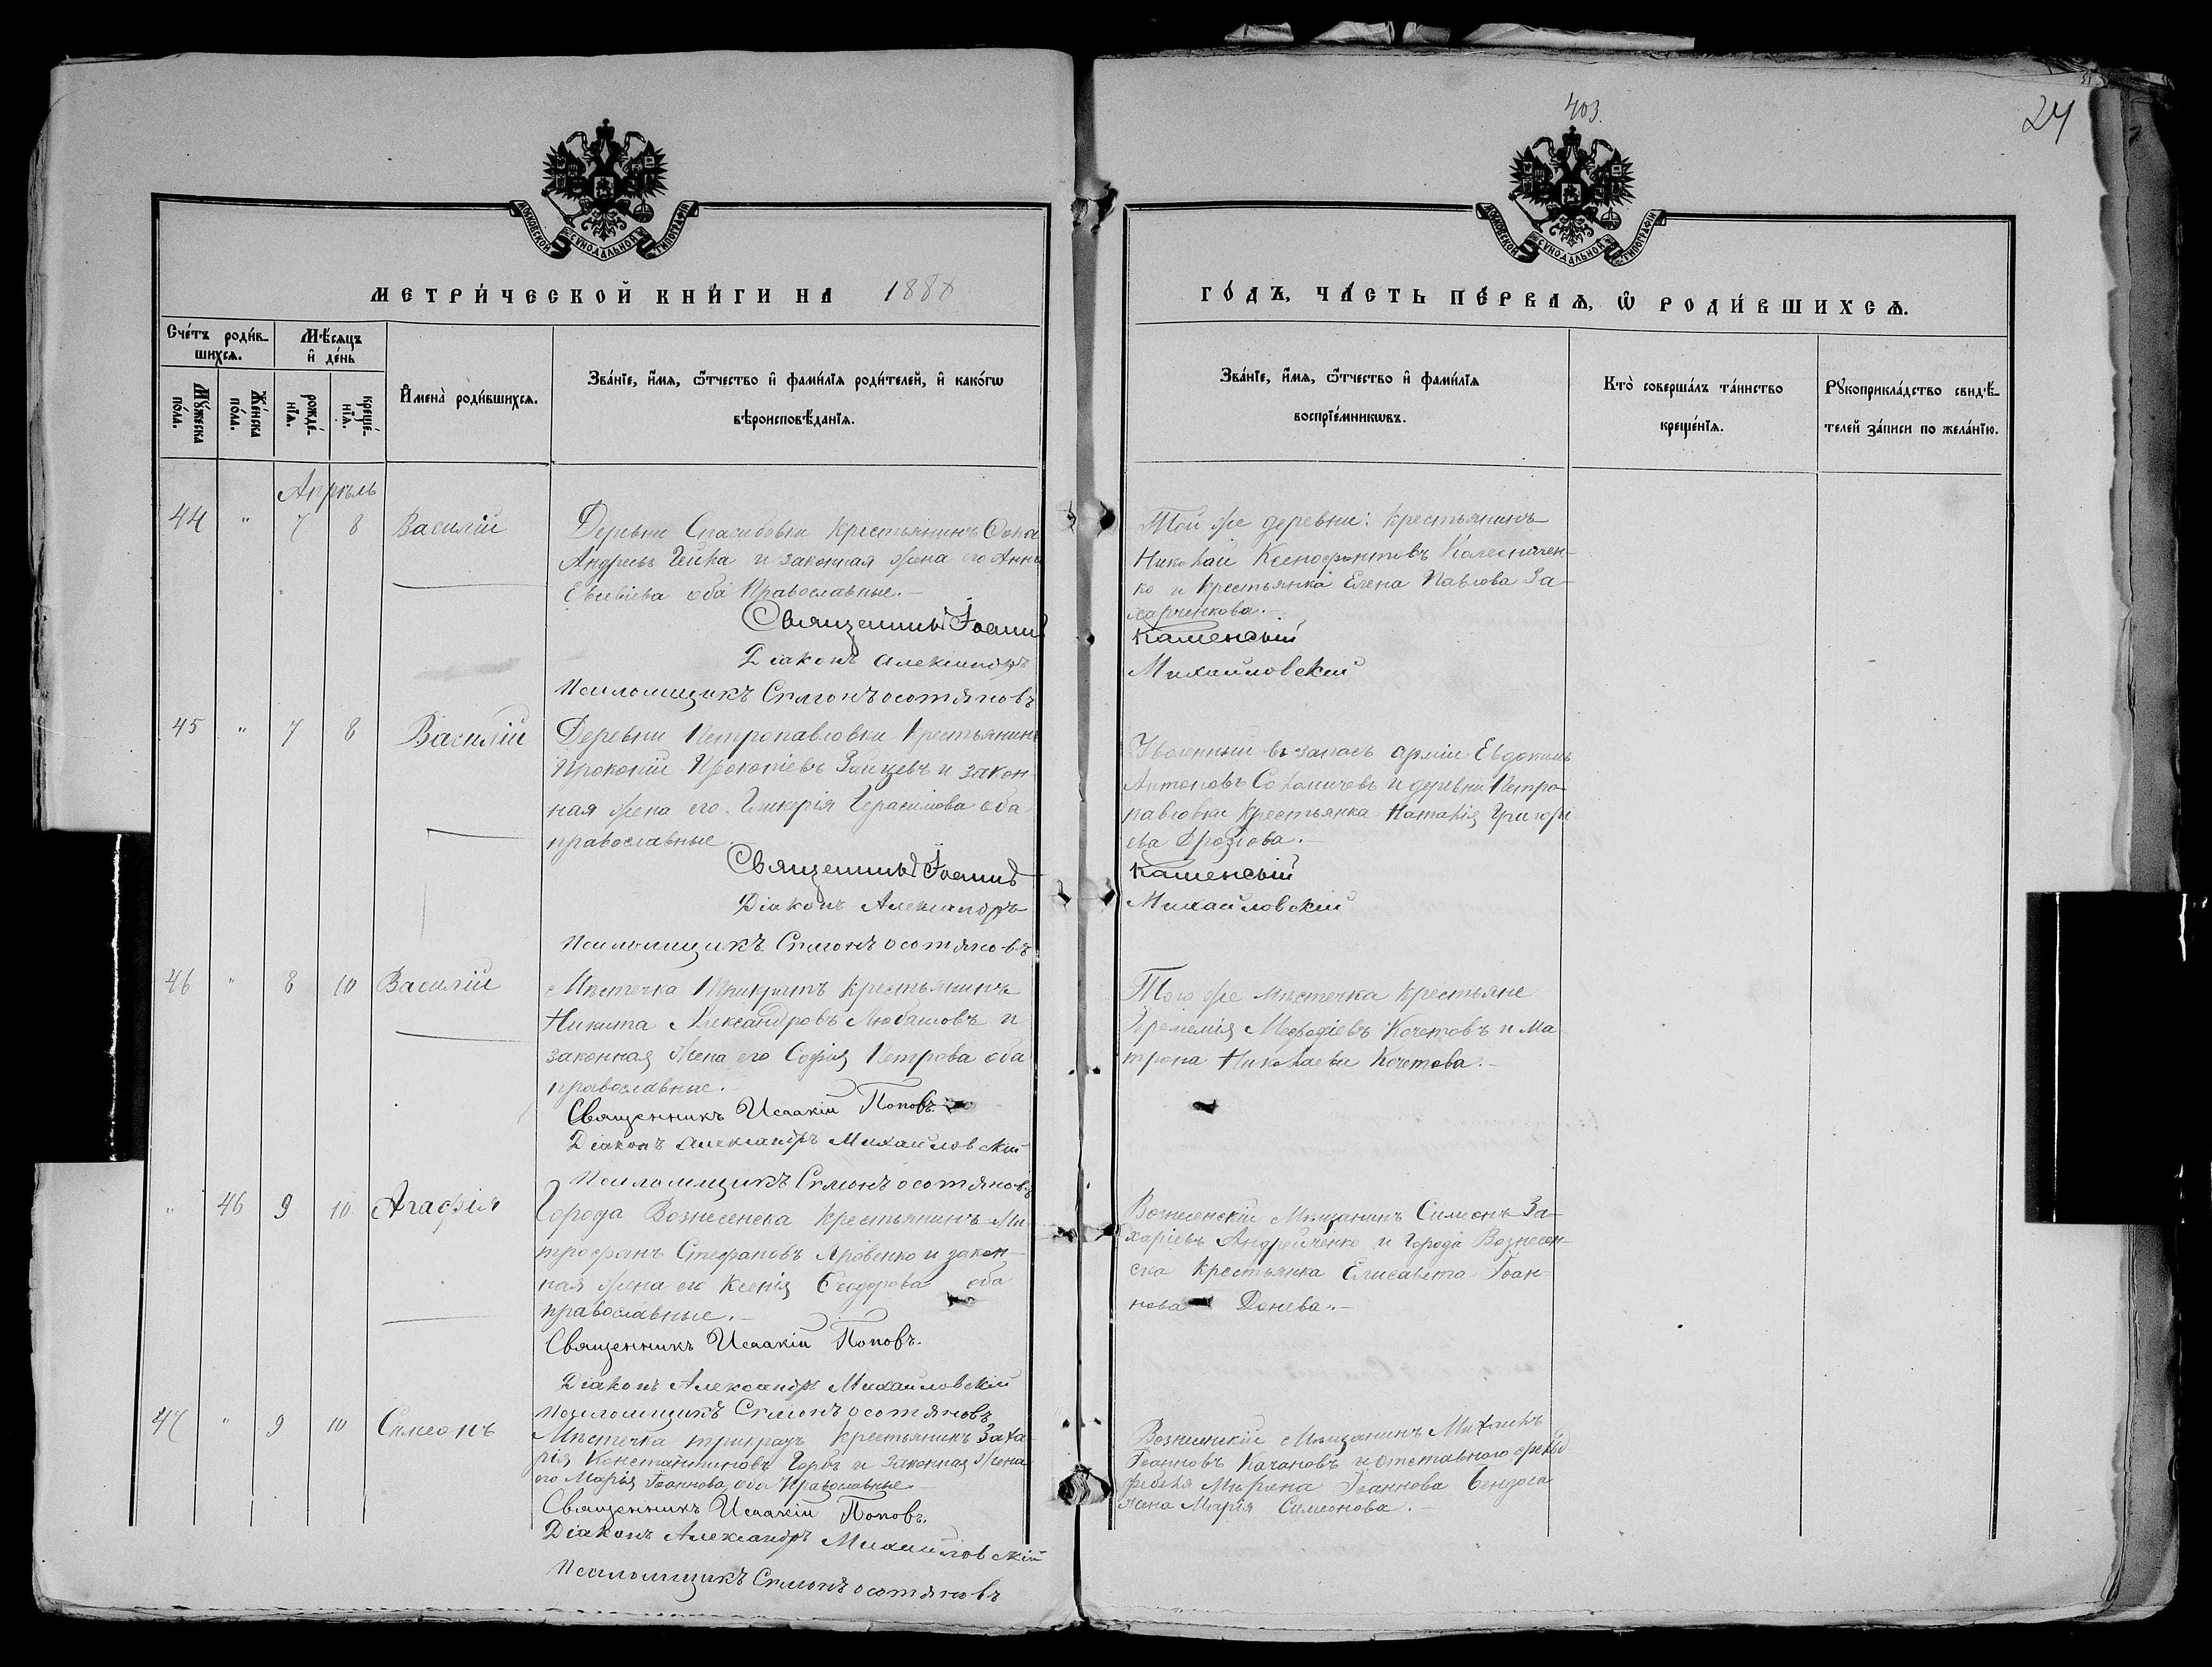 403.
24
МОСКОВСКОЙ СѴНОДАЛЬНОЙ ТИПОГРАФІИ
МОСКОВСКОЙ СѴНОДАЛЬНОЙ ТИПОГРАФІИ
МЕТРИ́ЧЕСКОЙ КНИ́ГИ НА 1888
ГО́ДЪ, ЧА́СТЬ ПЕ́РВАѦ, Ѡ҆ РОДИ́ВШИХСѦ.
Сче́тъ роди́в-
шихсѧ.
Мѣ́сѧцъ
и҆ де́нь
Мꙋ́жеска
по́ла.
Же́нска
по́ла.
рожде́-
нїѧ.
креще́-
нїѧ.
И҆мена̀ роди́вшихсѧ.
Зва́нїе, и҆́мѧ, ѻ҆́тчество и҆ фами́лїѧ роди́телей, и҆ како́гѡ
вѣроисповѣ́данїѧ.
Зва́нїе, и҆́мѧ, ѻ҆́тчество и҆ фами́лїѧ
воспрїе́мникѡвъ.
Кто̀ соверша́лъ та́инство
креще́нїѧ.
Рꙋкоприкла́дство свидѣ́-
телей за́писи по жела́нїю.
Апрѣль
44 " 7 8 Василій
Деревни Спасибовки крестьянинъ Ѳока
Андреевъ Гейка и законная жена его Анна
Евсевіева оба Православные.-
Священникъ Іоаннъ
Діаконъ Александръ
Псаломщикъ Сѵмонъ Осотяновъ
Той же деревни: крестьянинъ
Николай Ксенофонтовъ Колесничен-
ко и крестьянка Елена Павлова За-
харченкова.-
Каменскій
Михайловскій
45 " 7 8 Василій
Деревни Петропавловки крестьянинъ
Прокопій Прокопіевъ Зайцевъ и закон
ная жена его Гликерія Герасимова оба
православные.
Священникъ Іоаннъ
Діаконъ Александръ
Псаломщикъ Сѵмонъ Осотяновъ
Уволенный въ запасъ арміи Евдокимъ
Антоновъ и деревни Петро-
павловки крестьянка Наталія Григорі
ева Дроздова.-
Каменскій
Михайловскій
46 " 8 10 Василій
Мѣстечка Трикратъ крестьянинъ
Никита Александровъ Любашовъ и
законная жена его Софія Петрова оба
православные.-
Священникъ Исаакій Поповъ.
Діаконъ Александръ Михайловскій
Псаломщикъ Сѵмонъ Осотяновъ
Того же мѣстечка крестьяне
Іеремія Меѳодіевъ Кочетовъ и Ма-
трона Николаева Кочетова.-
" 46 9 10 Агафія
Города Вознесенска крестьянинъ Ми-
трофанъ Стефановъ Яровенко и закон-
ная жена его Ксенія Ѳеодорова оба
православные.-
Священникъ Исаакій Поповъ.
Діаконъ Александръ Михайловскій
Псаломщикъ Сѵмонъ Осотяновъ
Вознесенскій Мѣщанинъ Симеонъ За-
харіевъ Андрейченко и города Вознесен-
ска крестьянка Елисавета Іоан-
нова Донева.-
47 " 9 10 Сѵмеонъ
Мѣстечка Трикратъ крестьянинъ Заха-
рія Константиновъ Горбъ и законная жена
его Марія Іоаннова оба Православные
Священникъ Исаакій Поповъ.
Діаконъ Александръ Михайловскій
Псаломщикъ Сѵмонъ Осотяновъ
Вознесенскій Мѣщанинъ Михаилъ
Іоанновъ Качановъ и отставного фельд
фебеля Іоаннова
жена Марія Симеонова.-